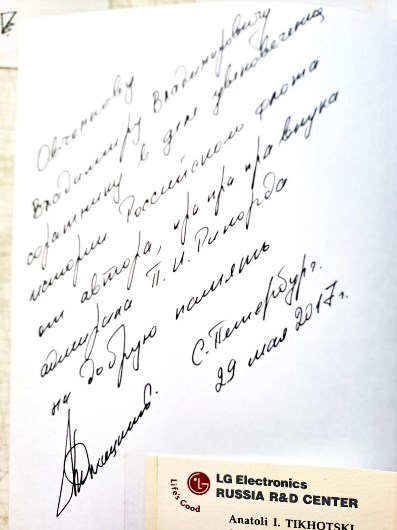 Овченкову
Владимиру Владимировичу
соратнику в деле увековечения
истории Российского флота
от автора, пра пра правнука
адмирала П. И. Рикорда
на добрую память
С.Петербург.
29 мая 2017 г.
LG Electronics
RUSSIA R&D CENTER
Life's Good
Anatoli I. TIKHOTSKI